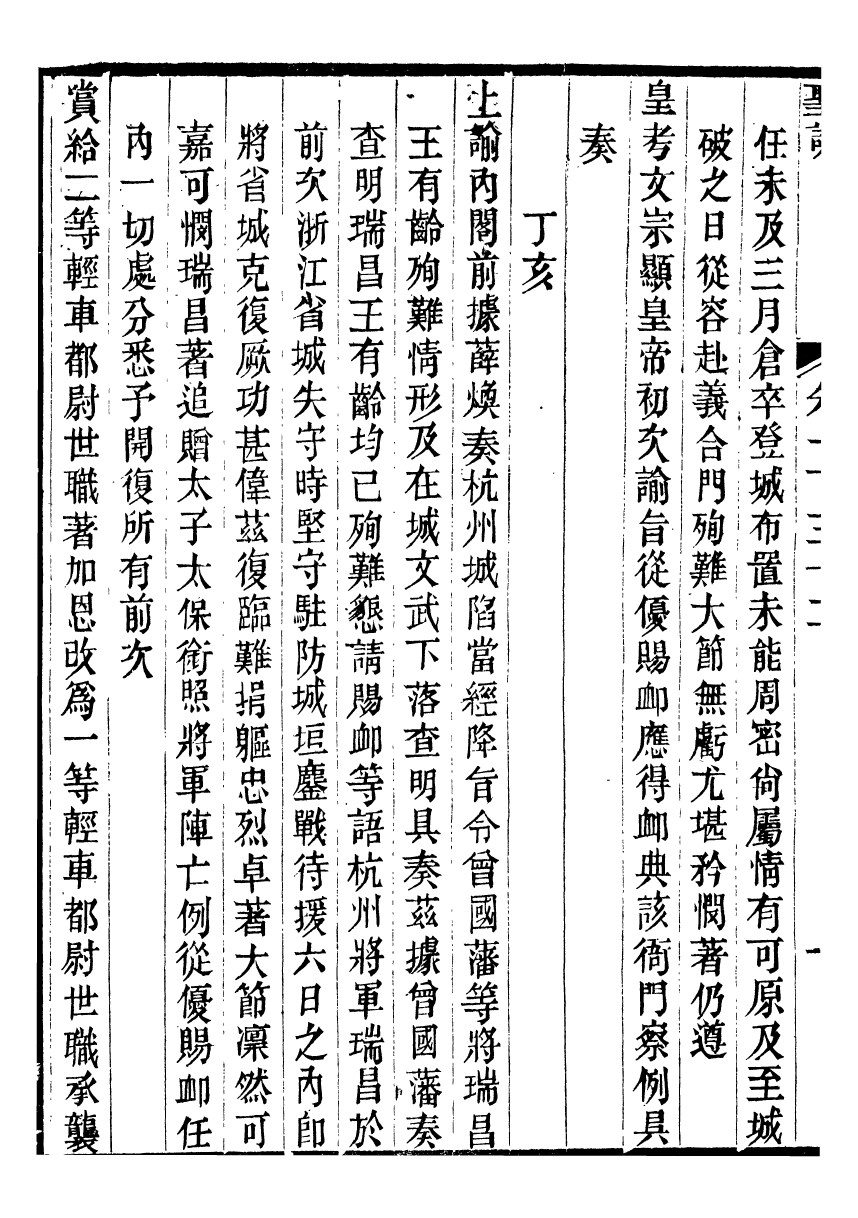 任未及三月倉卒登城布置未能周密尙屬情有可原及至城
破之日從容赴義合門殉難大節無虧尤堪矜憫著仍遵
皇考文宗顯皇帝初次諭旨從優賜卹應得卹典該衙門察例具
奏
丁亥
上諭內閣前據薛煥奏杭州城陷當經降旨令曾國藩等將瑞昌
王有齡殉難情形及在城文武下落查明具奏茲據曾國藩奏
查明瑞昌王有齡均已殉難懇請賜卹等語杭州將軍瑞昌於
前次浙江省城失守時堅守駐防城垣鏖戰待援六日之內卽
將省城克復厥功甚偉茲復臨難捐軀忠烈卓著大節凜然可
嘉可憫瑞昌著追贈太子太保銜照將軍陣亡例從優賜卹任
內一切處分悉予開復所有前次
賞給二等輕車都尉世職著加恩改爲一等輕車都尉世職承襲